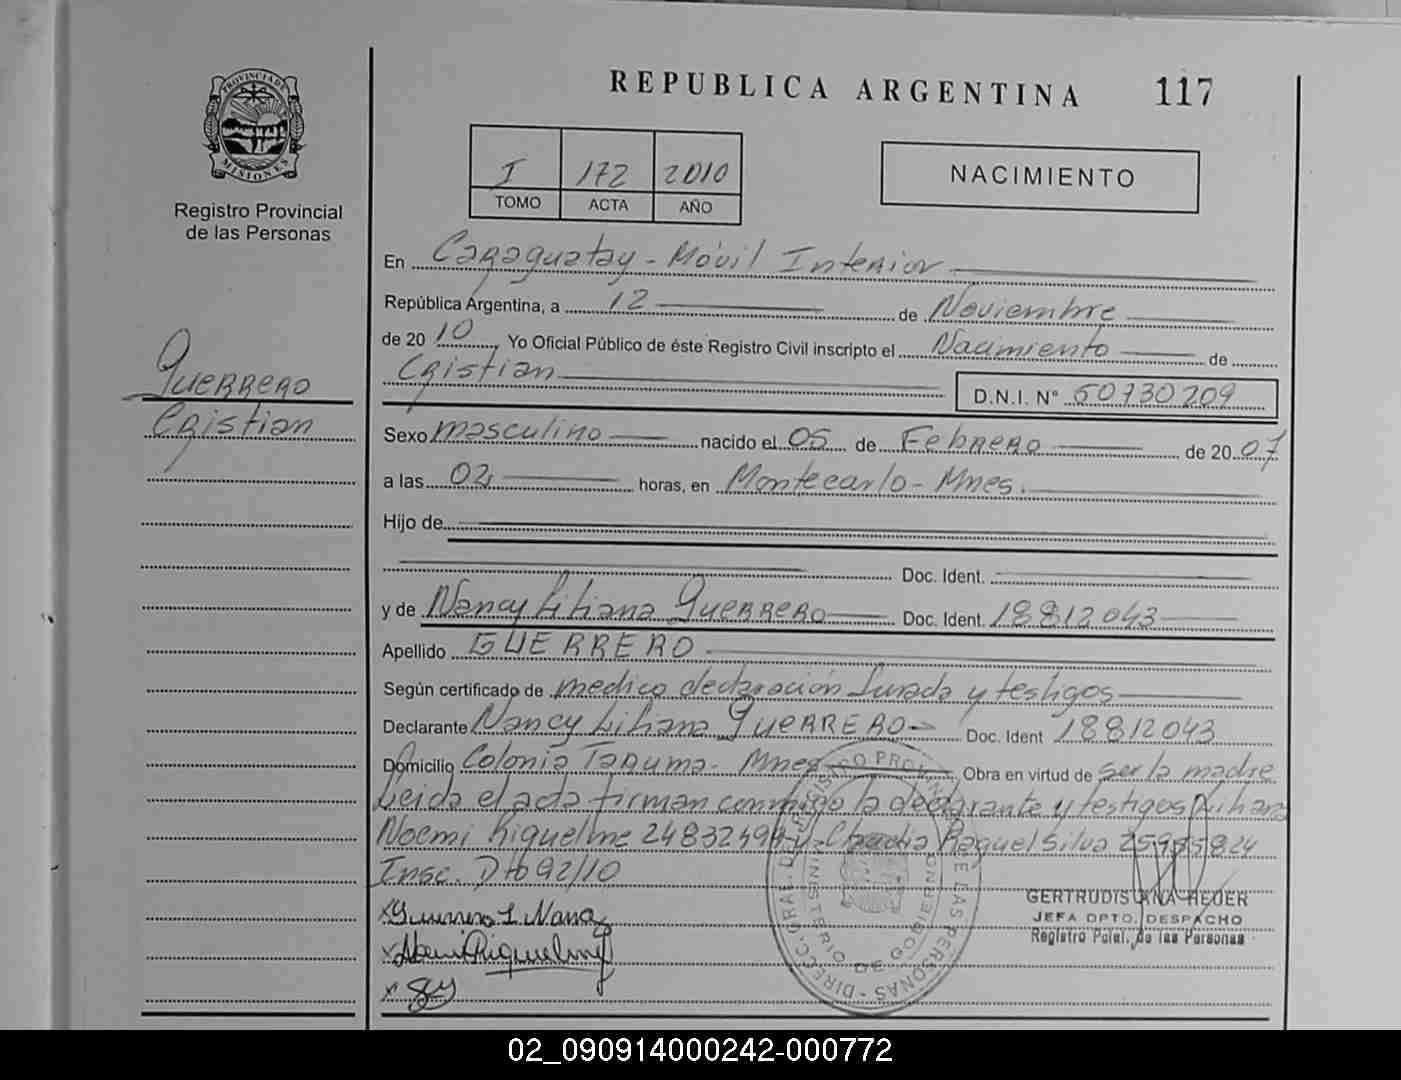 REPUBLICA ARGENTINA 117
PROVINCIA DE MISIONES
Registro Provincial
de las Personas
I 172 2010
TOMO ACTA AÑO
NACIMIENTO
Guerrero
Cristian
En Caraguatay - Móvil Interior
República Argentina, a 12 de Noviembre
de 20 10 Yo Oficial Público de éste Registro Civil inscripto el Nacimiento de
Cristian
D.N.I. N° 50730209
Sexo masculino nacido el 05 de Febrero de 20 07
a las 02 horas, en Montecarlo - Mnes.
Hijo de
Doc. Ident.
y de Nancy Liliana Guerrero Doc. Ident. 18812043
Apellido GUERRERO
Según certificado de medico declaración Jurada y testigos
Declarante Nancy Liliana Guerrero Doc. Ident 18812043
Domicilio Colonia Taruma - Mnes Obra en virtud de ser la madre
Leida el acta firman conmigo la declarante y testigos Liliana
Noemi Riquelme 24832499 y Claudia Raquel Silva 25985824
Insc. Dto 92/10
GERTRUDIS ANA HEUER
JEFA DPTO. DESPACHO
Registro Pcial. de las Personas
x Guerrero L. Nancy
x Noemi Riquelme
DIRECC. GRAL. DEL REGISTRO PROVINCIAL DE LAS PERSONAS
MINISTERIO DE GOBIERNO
02_090914000242-000772